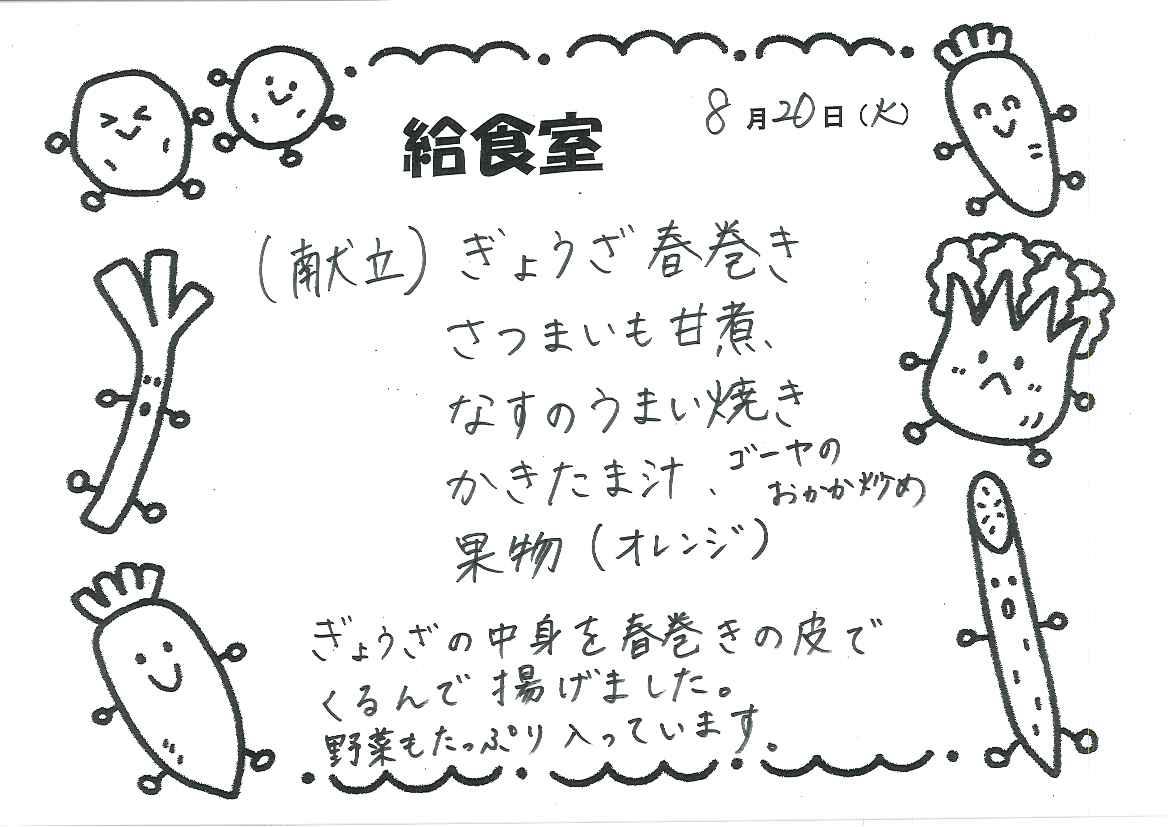 給食室
8月20日(火)
(献立) ぎょうざ春巻き
さつまいも甘煮、
なすのうまい焼き
かきたま汁、ゴーヤの
おかか炒め
果物(オレンジ)
ぎょうざの中身を春巻きの皮で
くるんで揚げました。
野菜もたっぷり入っています。